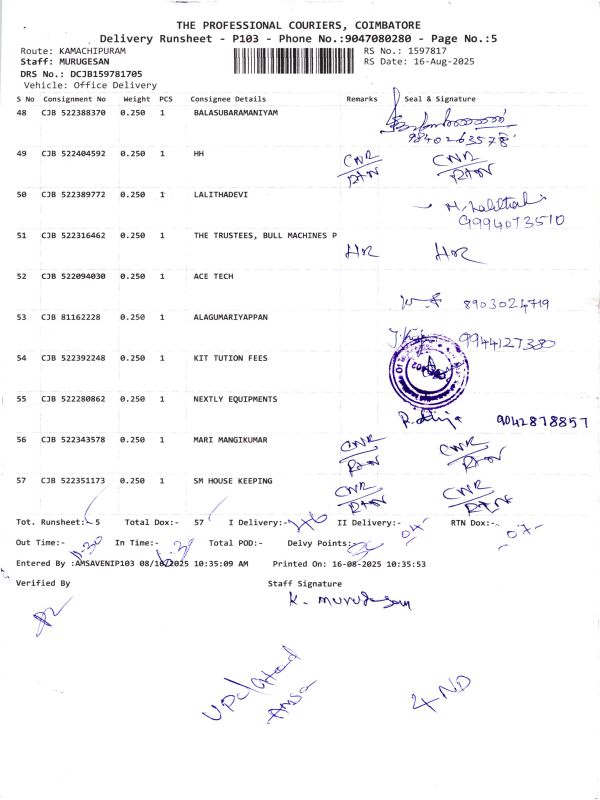 THE PROFESSIONAL COURIERS, COIMBATORE
Delivery Runsheet - P103 - Phone No.:9047080280 - Page No.:5
Route: KAMACHIPURAM RS No.: 1597817
Staff: MURUGESAN RS Date: 16-Aug-2025
DRS No.: DCJB159781705
Vehicle: Office Delivery
S No Consignment No Weight PCS Consignee Details Remarks Seal & Signature
48 CJB 522388370 0.250 1 BALASUBARAMANIYAM
9840263578
49 CJB 522404592 0.250 1 HH CNR CNR
RTN RTN
50 CJB 522389772 0.250 1 LALITHADEVI
9994073510
51 CJB 522316462 0.250 1 THE TRUSTEES, BULL MACHINES P
52 CJB 522094030 0.250 1 ACE TECH
8903024719
53 CJB 81162228 0.250 1 ALAGUMARIYAPPAN
9944127380
54 CJB 522392248 0.250 1 KIT TUTION FEES
55 CJB 522280862 0.250 1 NEXTLY EQUIPMENTS
9042878857
56 CJB 522343578 0.250 1 MARI MANGIKUMAR CNR CNR
RTN RTN
57 CJB 522351173 0.250 1 SM HOUSE KEEPING CNR CNR
RTN RTN
Tot. Runsheet:- 5 Total Dox:- 57 I Delivery:- II Delivery:- RTN Dox:-
Out Time:- In Time:- Total POD:- Delvy Points:-
Entered By :AMSAVENIP103 08/16/2025 10:35:09 AM Printed On: 16-08-2025 10:35:53
Verified By Staff Signature
K. murugesan
Updated
Amsa
4 ND